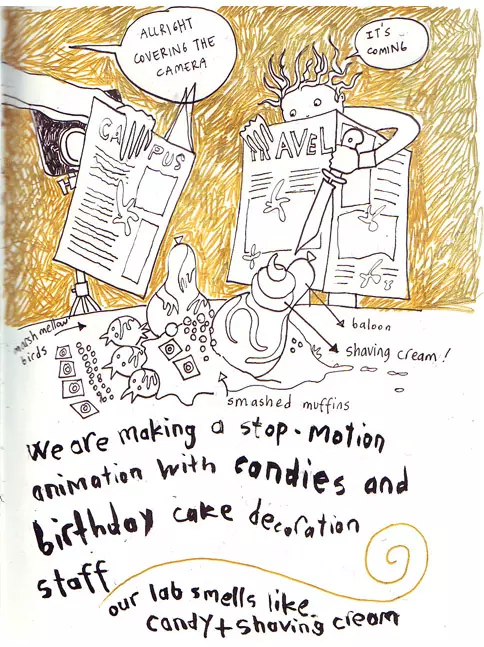 ALLRIGHT
COVERING THE
CAMERA
IT'S
COMING
CAMPUS
TRAVEL
marshmellow
birds
baloon
shaving cream !
smashed muffins
We are making a stop-motion
animation with candies and
birthday cake decoration
staff
our lab smells like
candy + shaving cream